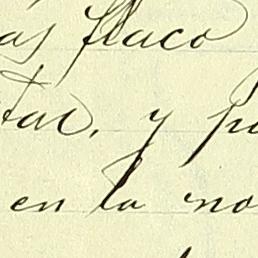 as flaco
tar, y po
en la no